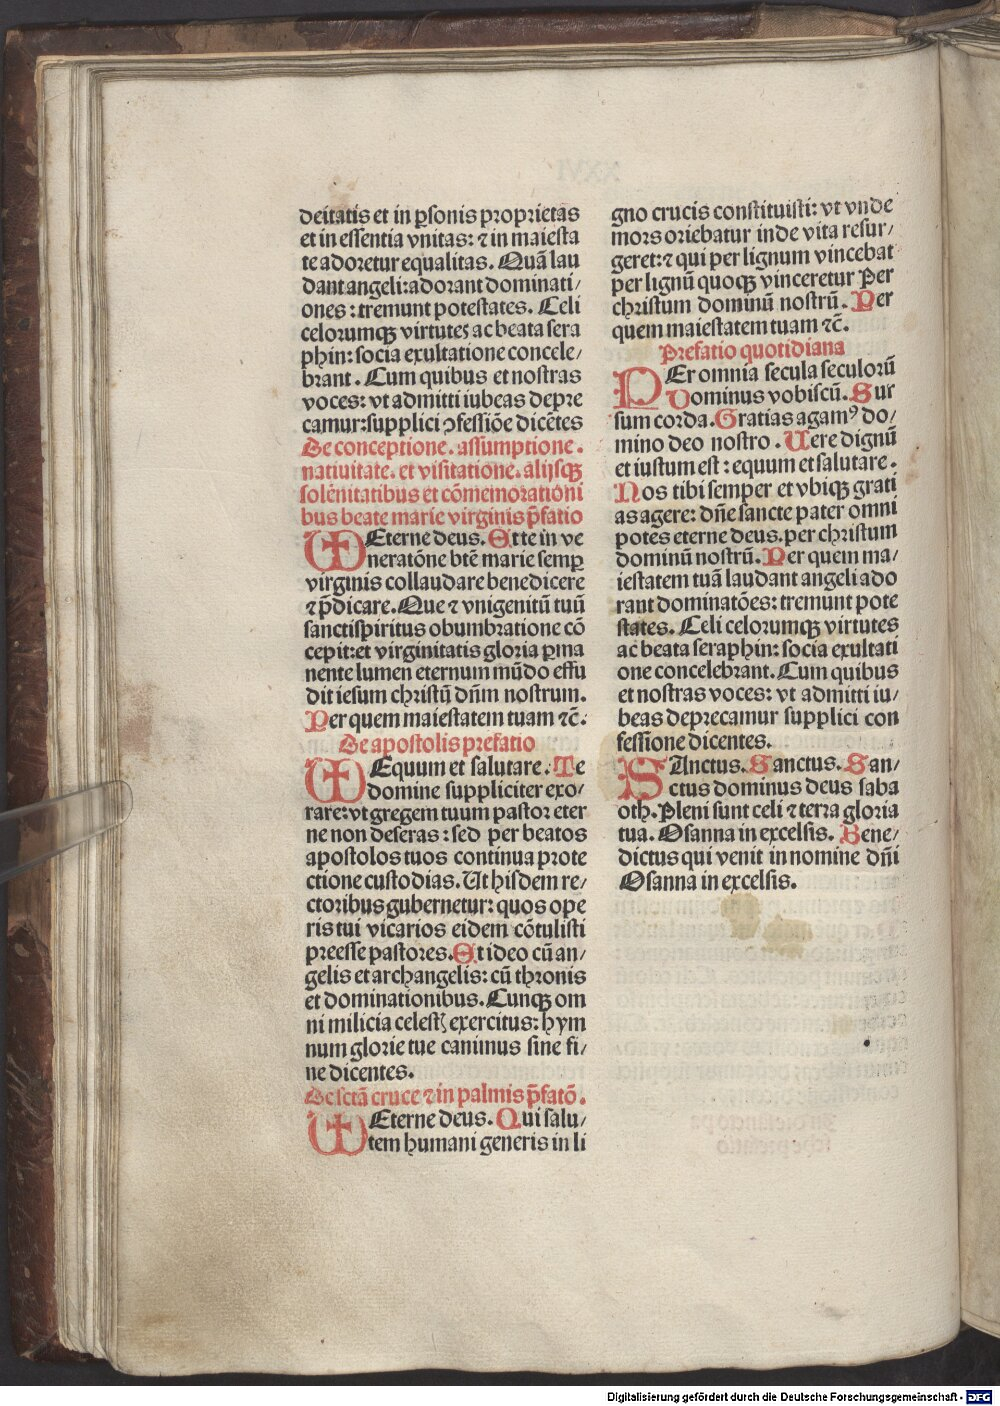 deitatis et in ꝑsonis proprietas
et in essentia vnitas: ⁊ in maiesta
te adoretur equalitas. Quā lau
dant angeli: adorant dominati/
ones: tremunt potestates. Celi
celorumqꝫ virtutes ac beata sera
phin: socia exultatione concele/
brant. Cum quibus et nostras
voces: vt admitti iubeas depre
camur: supplici ↄfessiōe dicētes
De conceptione. assumptione.
natiuitate. et visitatione. alijsqꝫ
solēnitatibus et cōmemorationi
bus beate marie virginis p̄fatio
Eterne deus. Et te in ve
neratōne btē marie semꝑ
virginis collaudare benedicere
⁊ p̄dicare. Que ⁊ vnigenitū tuū
sanctispiritus obumbratione cō
cepit: et virginitatis gloria ꝑma
nente lumen eternum mūdo effu
dit iesum christū dn̄m nostrum.
Per quem maiestatem tuam ⁊c̄.
De apostolis prefatio
Equum et salutare. Te
domine suppliciter exo/
rare: vt gregem tuum pastor eter
ne non deseras: sed per beatos
apostolos tuos continua prote
ctione custodias. Ut hisdem re/
ctoribus gubernetur: quos ope
ris tui vicarios eidem cōtulisti
preesse pastores. Et ideo cū an/
gelis et archangelis: cū thronis
et dominationibus. Cunqꝫ om
ni milicia celestꝭ exercitus: hym
num glorie tue canimus sine fi/
ne dicentes.
De sctā cruce ⁊ in palmis p̄fatō.
Eterne deus. Qui salu/
tem humani generis in li
gno crucis constituisti: vt vnde
mors oriebatur inde vita resur/
geret: ⁊ qui per lignum vincebat
per lignū quoqꝫ vinceretur Per
christum dominū nostrū. Per
quem maiestatem tuam ⁊c̄.
Prefatio quotidiana
PEr omnia secula seculorū
Dominus vobiscū. Sur
sum corda. Gratias agamꝰ do/
mino deo nostro. Uere dignū
et iustum est: equum et salutare.
Nos tibi semper et vbiqꝫ grati
as agere: dn̄e sancte pater omni
potes eterne deus. per christum
dominū nostrū. Per quem ma/
iestatem tuā laudant angeli ado
rant dominatōes: tremunt pote
states. Celi celorumqꝫ virtutes
ac beata seraphin: socia exultati
one concelebrant. Cum quibus
et nostras voces: vt admitti iu/
beas deprecamur supplici con
fessione dicentes.
SAnctus. Sanctus. San/
ctus dominus deus saba
oth. Pleni sunt celi ⁊ terra gloria
tua. Osanna in excelsis. Bene/
dictus qui venit in nomine dn̄i
Osanna in excelsis.
Digitalisierung gefördert durch die Deutsche Forschungsgemeinschaft - DFG